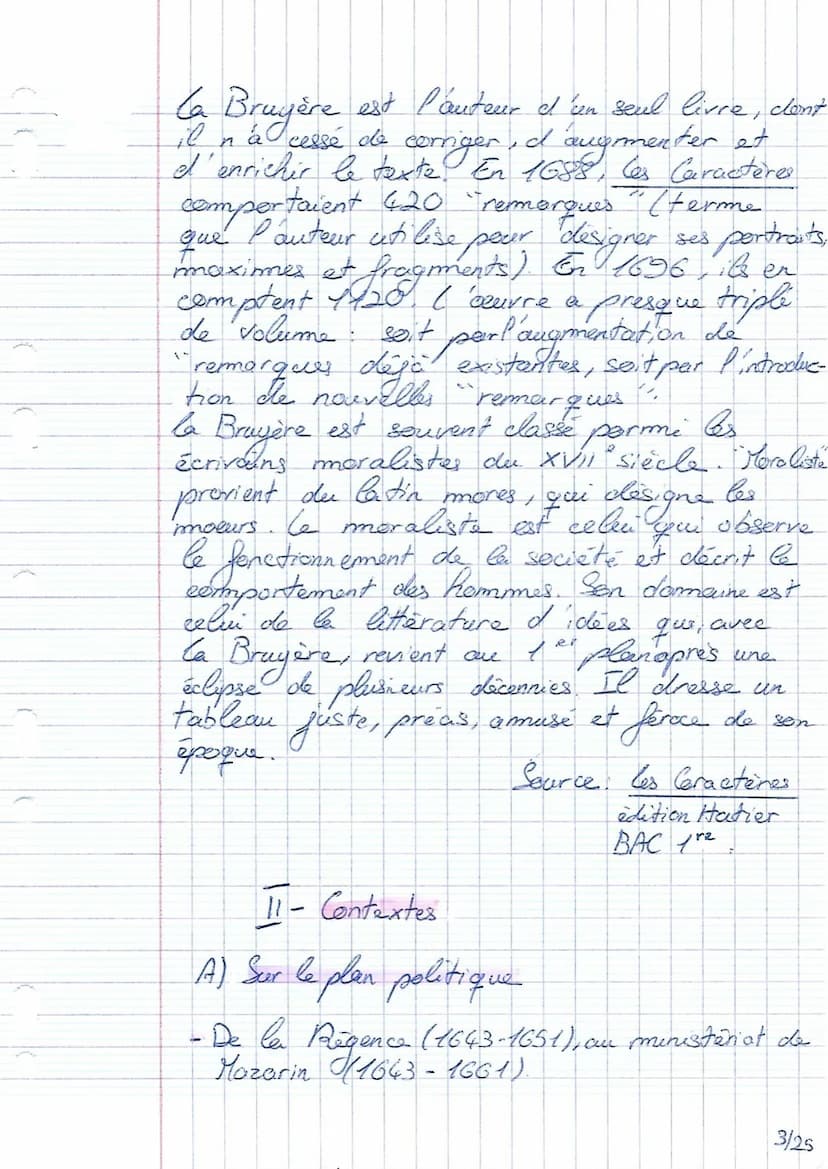 La Bruyère est l'auteur d'un seul livre, dont
il n'a cessé de corriger, d'augmenter et
d'enrichir le texte. En 1688, Les Caractères
comportaient 420 "remarques" (terme
que l'auteur utilise pour désigner ses portraits,
maximes et fragments). En 1696, ils en
comptent 1120. L'œuvre a presque triplé
de volume : soit par l'augmentation de
"remarques déjà existantes, soit par l'introduc-
tion de nouvelles "remarques".
La Bruyère est souvent classé parmi les
écrivains moralistes du XVII° siècle. "Moraliste"
provient du latin mores, qui désigne les
moeurs. Le moraliste est celui qui observe
le fonctionnement de la société et décrit le
comportement des hommes. Son domaine est
celui de la littérature d'idées qui, avec
La Bruyère, revient au 1er plan après une
éclipse de plusieurs décennies. Il dresse un
tableau juste, précis, amusé et féroce de son
époque.
Source : Les Caractères
édition Hatier
BAC 1re.
II - Contextes
A) Sur le plan politique
- De la Régence (1643-1651), au ministériat de
Mazarin (1643 - 1661).
3/25